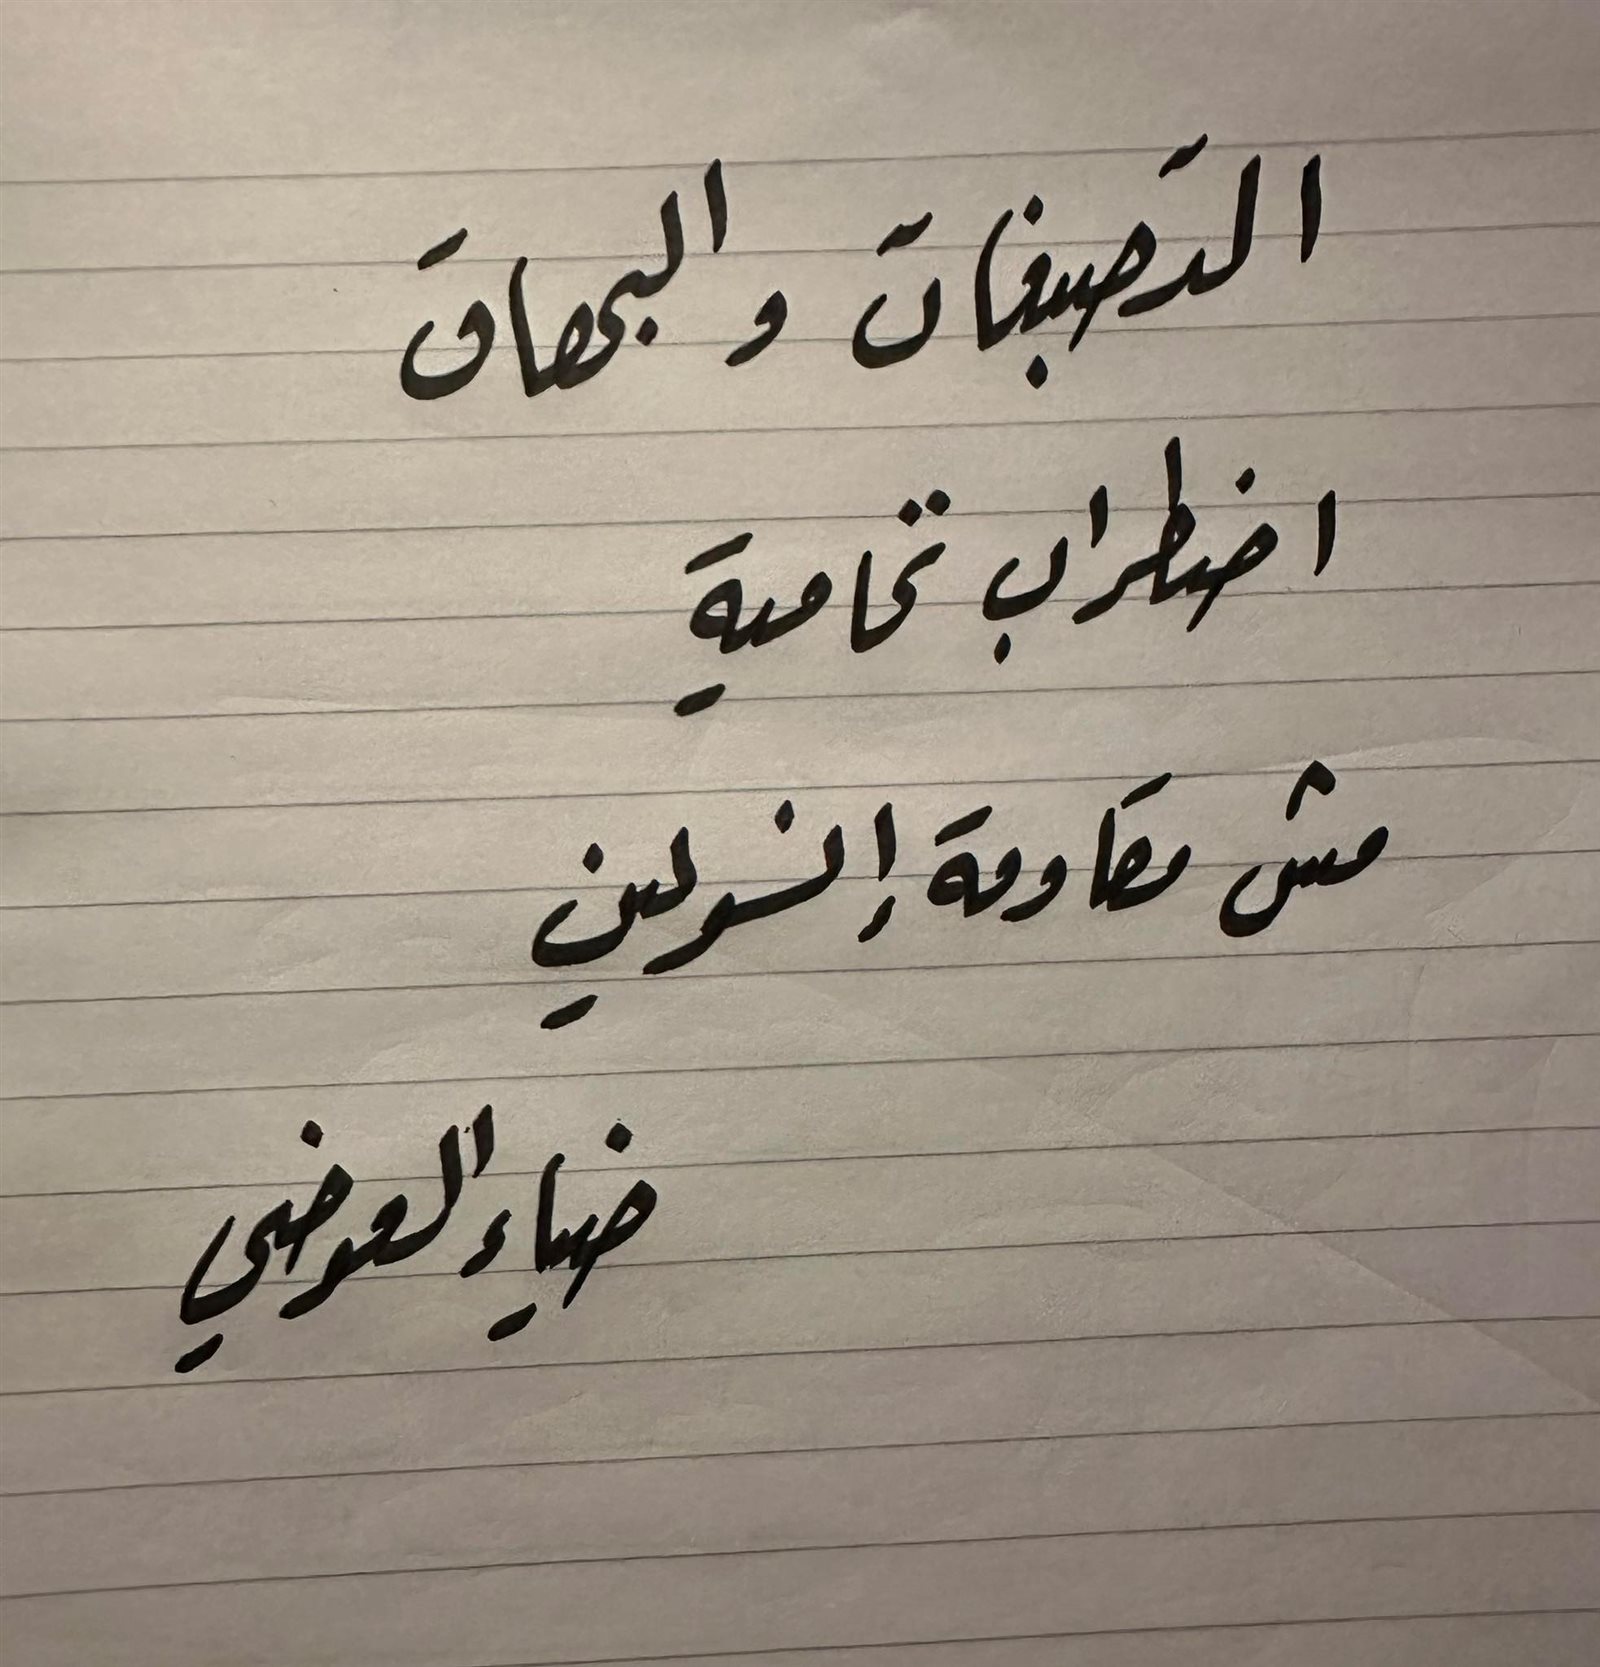 التصبغات والبهاق
اضطراب تحامية
مش مقاومة إنسولين
ضياء العوضي